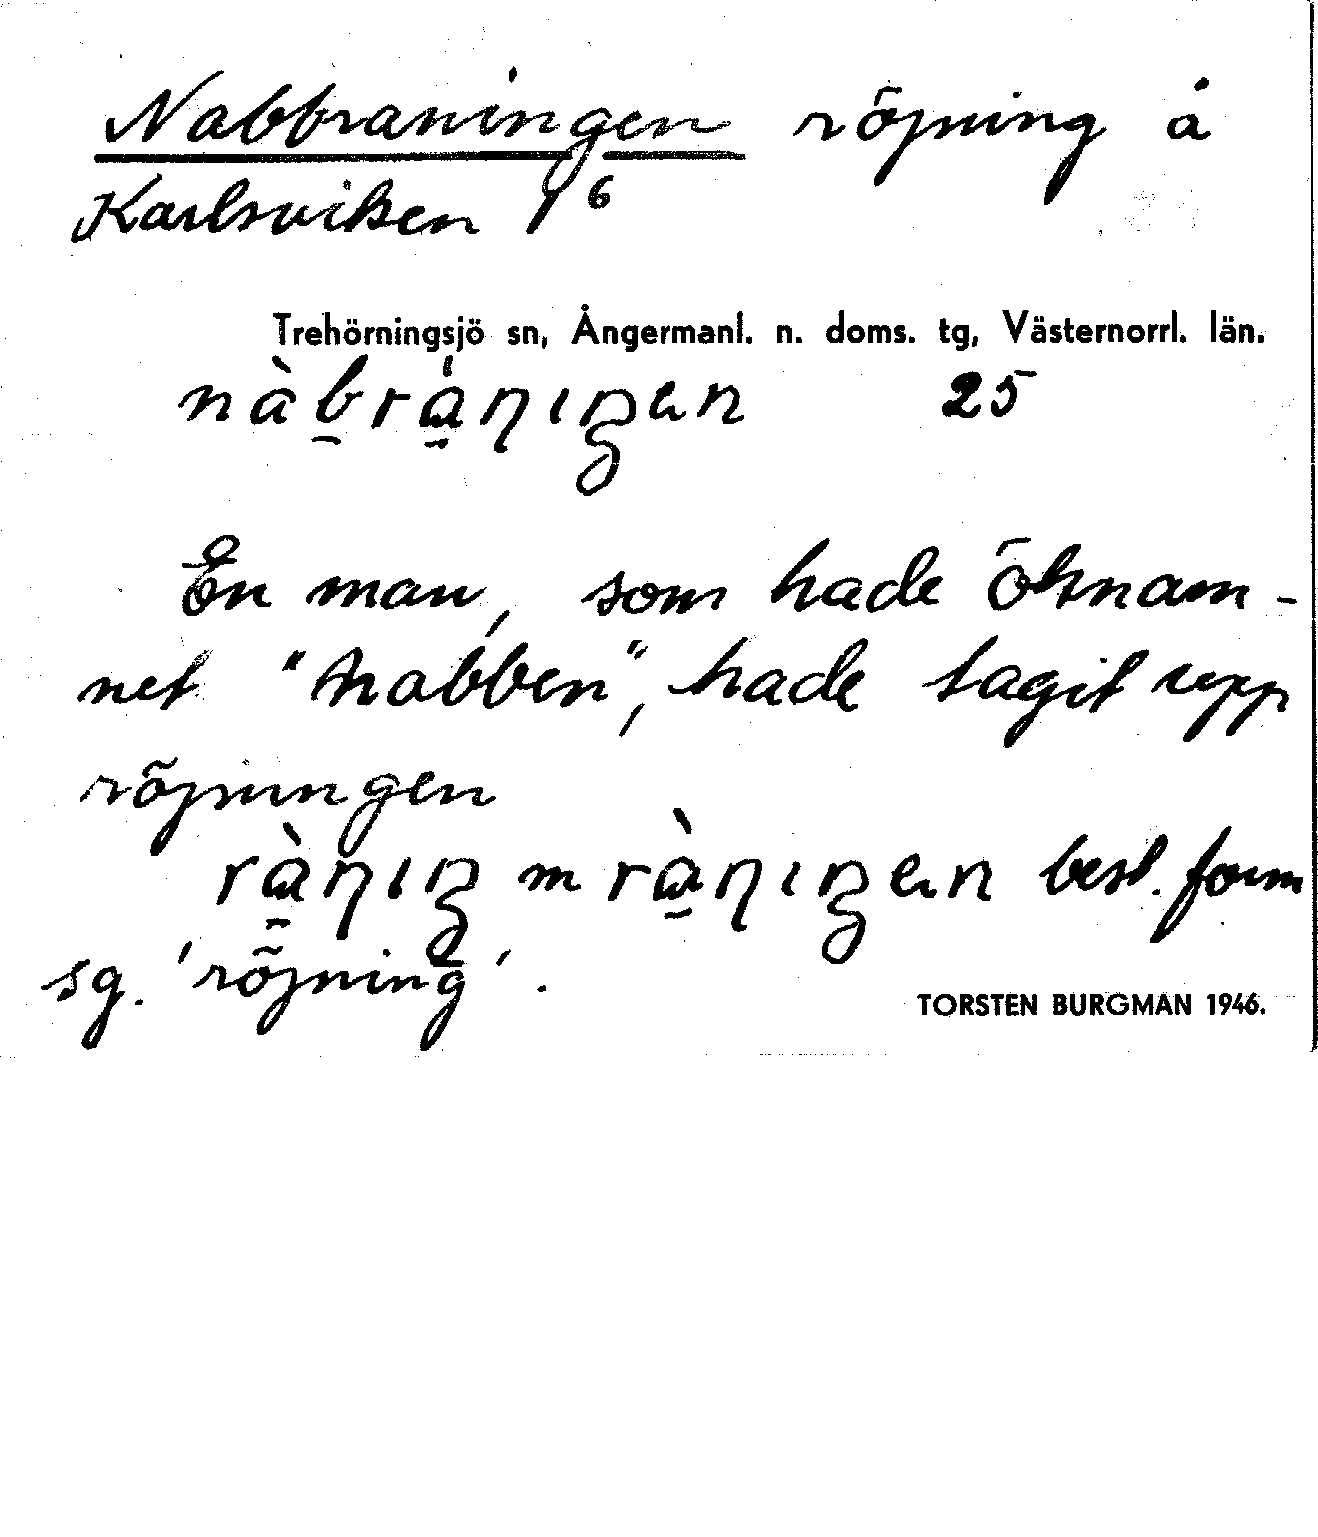 Nabbraningen röjning å
Karlsviken 1⁶
Trehörningsjö sn, Ångermanl. n. doms. tg, Västernorrl. län.
nàb̠rá̠ŋıŋen 25
En man, som hade öknam-
net "Nabben", hade tagit upp
röjningen
rà̠ŋıŋ m rà̠ŋıŋen best. form
sg. 'röjning'.
TORSTEN BURGMAN 1946.